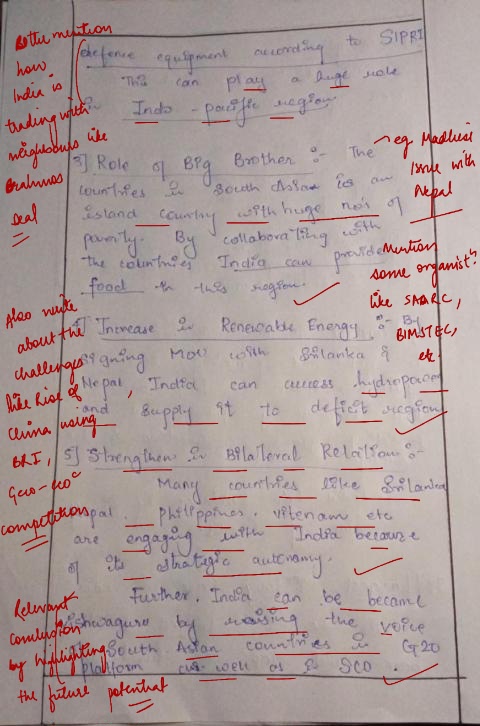 Better mention
how
India is
trading with
neighbours like
Brahmos
deal
defence equipment according to SIPRI
This can play a huge role
in Indo - pacific region.
3] Role of Big Brother :- The
countries in South Asian is an
island country with huge no's of
poverty. By collaborating with
the countries India can provide
food in this region.
eg Madhesi
Issue with
Nepal
Mention
some organist's
like SAARC,
BIMSTEC,
etc.
Also write
about the
challenges
like Rise of
China using
BRI,
Geo-eco
competitions
4] Increase in Renewable Energy :- By
signing MoU with Srilanka &
Nepal, India can access hydropower
and supply it to deficit region
5] Strengthen in Bilateral Relation :-
Many countries like Srilanka
Nepal, philippines, vitenam etc
are engaging with India because
of its strategic autonomy.
Further, India can be became
Vishwaguru by raising the voice
South Asian countries in G20
platform as well as in SCO.
Relevant
conclusion
by highlighting
the future potential